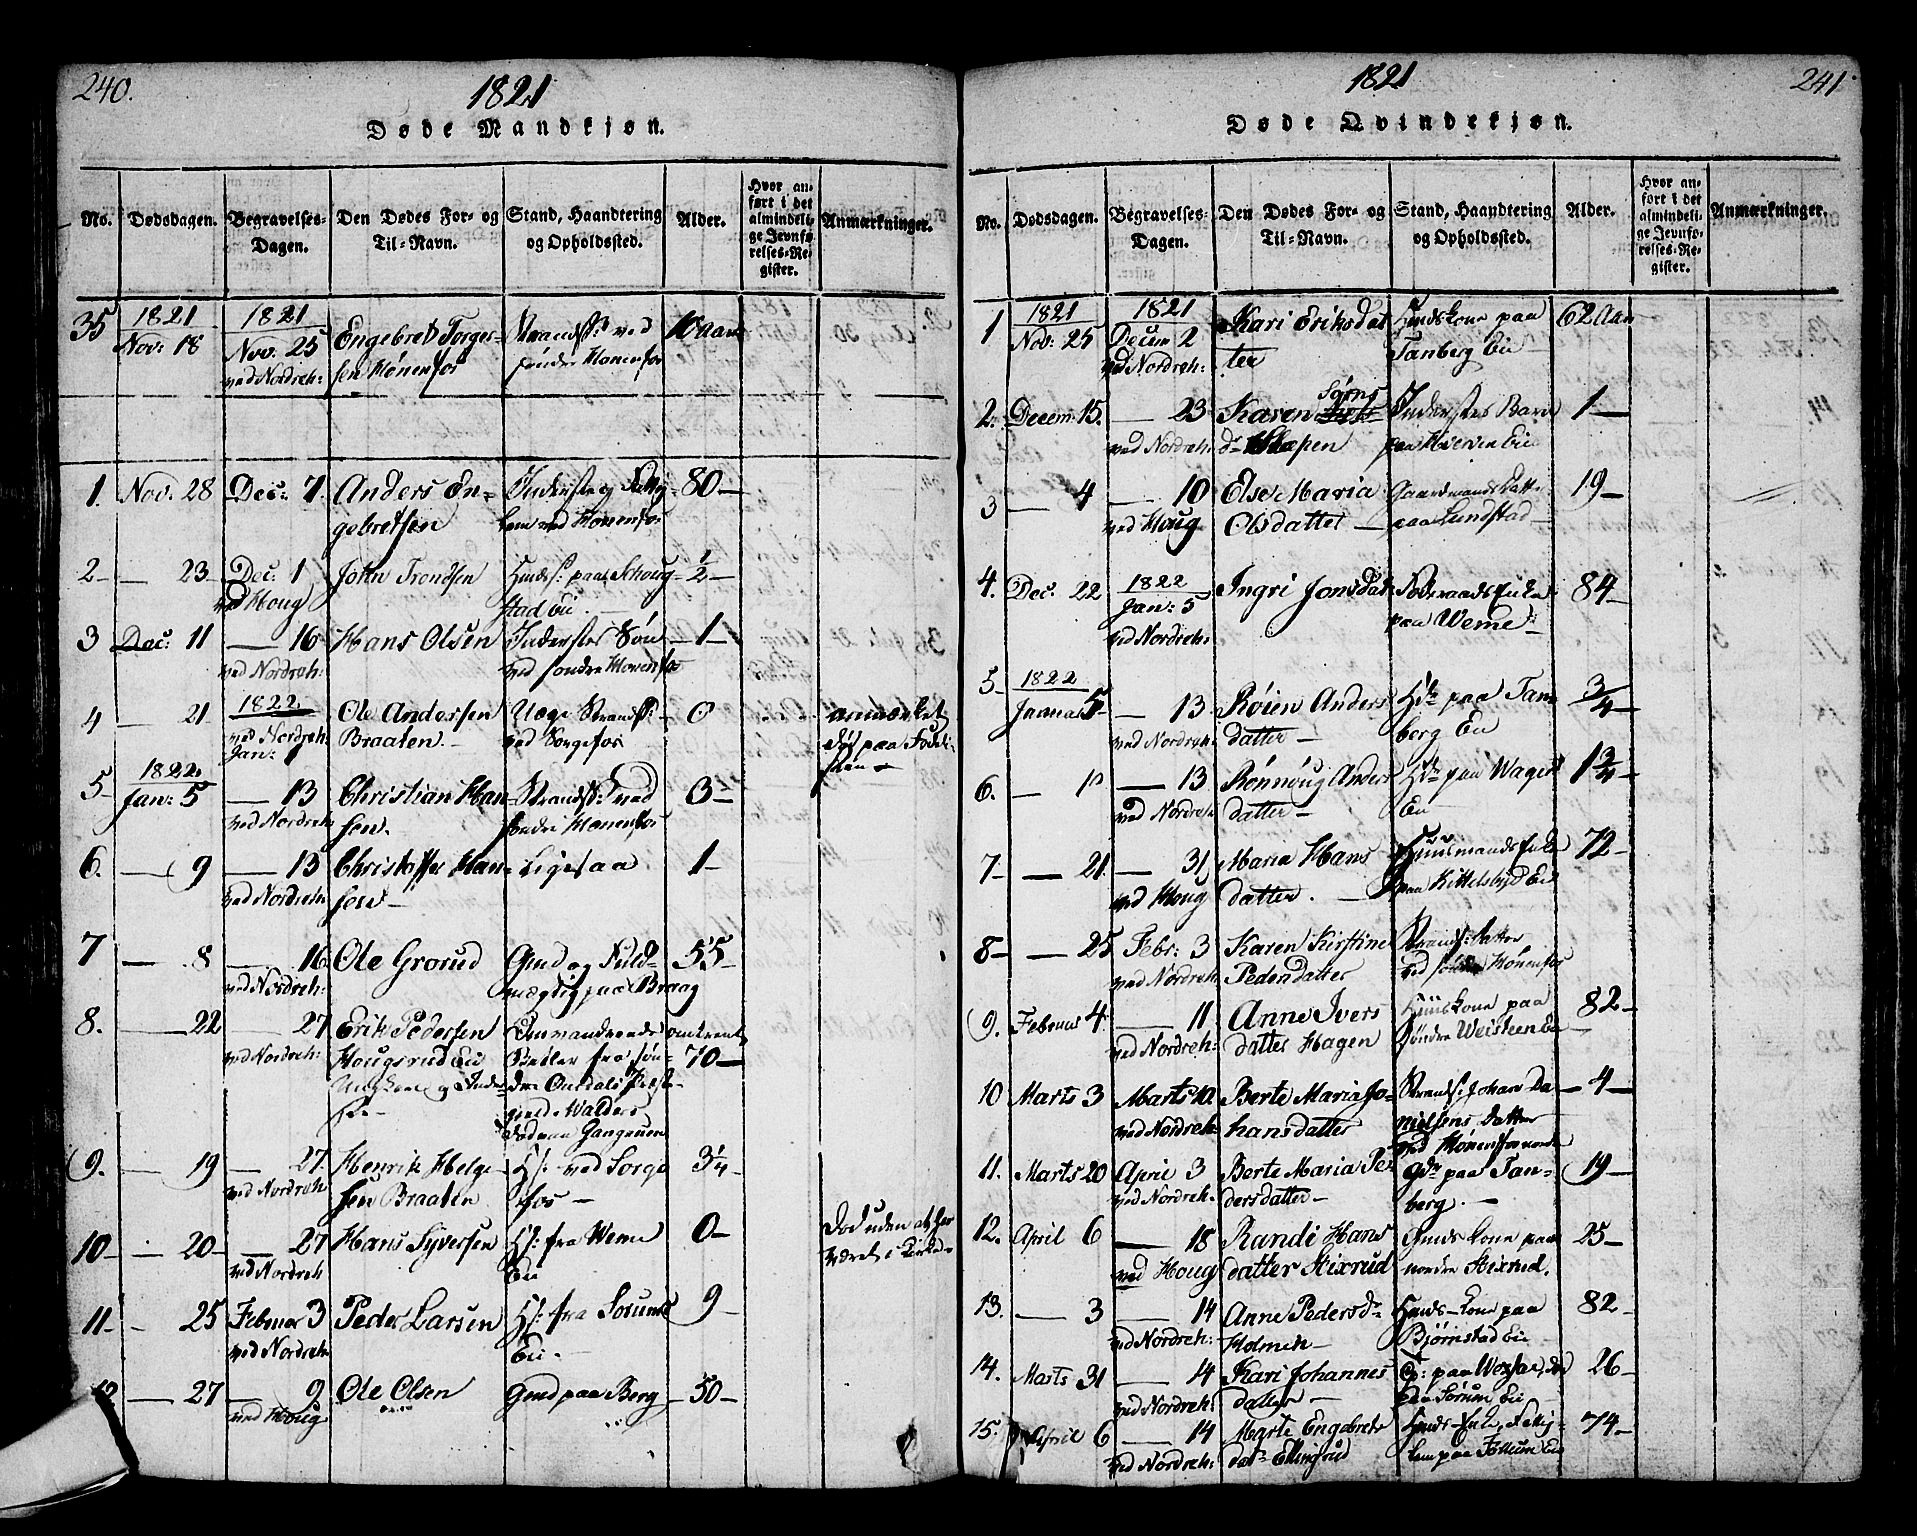 240.
1821
Døde Mandkjøn.
No.
Dødsdagen.
Begravelses-
Dagen.
Den Dødes For- og
Til-Navn.
Stand, Haandtering
og Opholdssted.
Alder.
Hvor an-
ført i det
almindeli-
ge Jevnfø-
relses-Re-
gister.
Anmærkninger.
35
1821
Nov: 18
1821
Nov. 25
ved Nordreh:
Engebret Torges-
sen Hønenfos
Strands: ved
søndre Hønenfos
1. Nov. 28 Dec: 7 Anders En-
gebretsen
ved Hønenfos
80
2 — 23 Dec: 1
ved Houg
John Trondsen
Huds: paa Schoug-
stad Ei.
1/2
3 Dec: 11 — 16
ved Nordreh:
Hans Olsen
Inderstes Søn
ved søndre Hønenfos
1
4 — 21
1822
ved Nordreh:
Jan: 1
Ole Andersen
Braaten
ved Sorgefos
0
5
1822
Jan: 5
— 13
ved Nordreh
Christian Han-
sen.
Strands: ved
søndre Hønenfos
3
6. — 9 — 13
ved Nordreh:
Christoffer Han-
sen
Ligesaa
1
7 — 8 — 16
ved Nordreh:
Ole Grorud
Gmd og Fuld-
mægtig paa Braag
55
8. — 22 — 27
ved Nordreh:
Erik Pedersen
Hougsrud Ei
Omvandrende
Betler fra søn-
dre
omtrent
70
9. — 19 — 27
ved Nordreh
Henrik Helge-
sen Braaten
Hs: ved Sorge-
fos
3/4
10 — 20 — 27
ved Nordreh
Hans Syversen
Hs: fra Weme
Ei
0
Død uden at har
været i Kirke
11 — 25 Februar 3
ved Nordreh
Peder Larsen
Hs: fra Sorum
Ei
9
— 27 — 9
ved Houg
Ole Olsen
Gmd paa Berg
50
1821
241
Døde Qvindekjøn.
No.
Dødsdagen.
Begravelses-
Dagen.
Den Dødes For- og
Til-Navn.
Stand, Haandtering
og Opholdssted.
Alder.
Hvor an-
ført i det
almindeli-
ge Jevnfø-
relses-Re-
gister.
Anmærkninger.
1
1821
Nov: 25
1821
Decem 2
ved Nordreh:
Kari Eriksdat
ter
Huuskone paa
Tanberg Ei
62 Aar
2. Decem 15. — 23
ved Nordreh:
Karen Sørns
d
Inderstes Barn
paa Hverven Ei
1
3 — 4 — 10
ved Houg
Else Maria
Olsdatter
Gaardmands Datter
paa Lundstad
19
4. Dec: 22
1822
Jan: 5
ved Nordreh:
Ingri Jonsdat
Føderaads Enke
paa Weme
84
5
1822
Januar 5 — 13
ved Nordreh:
Røien Anders
datter
Hdr paa Tan
berg Ei
3/4
6. — 13
ved Nordreh
Rønnoug Anders
datter
Hdr paa Wager
Ei
1 3/4
7 — 21 — 31
ved Houg
Maria Hans
datter.
Huusmands Enke
paa Kittelsbyd Ei
72
8 — 25 Febr: 3
ved Nordreh:
Karen Kirstine
Pedersdatter
Strands: datter
ved søndre Hønenfos
9. Februar 4 — 11
ved Nordreh:
Anne Ivers
datter Hagen
Huuskone paa
søndre Weisteen Ei
82
10 Marts 3 Marts 10
ved Nordreh:
Berte Maria Jo-
hansdatter
Strands: Johan Da-
nielsens Datter
ved Hønenfos nordre
4
11. Marts 20 April 3
ved Nordreh.
Berte Maria Pe
dersdatter
Gdr paa Tan-
berg.
19
12. April 6 — 18
ved Houg
Randi Hans
datter Stixrud
Gmds Kone paa
nordre Stixrud.
25
13. — 3 — 14
ved Nordreh:
Anne Pedersd
Holmen
Huuds Kone paa
Bjørnstad Ei
82
14. Marts 31 — 14
ved Nordreh:
Kari Johannes
datter
26
15. April 6 — 14
ved Nordreh:
Marte Engebrets
dat Ellingrud
Huuds Enke, Fattig-
lem paa Follum Ei
74